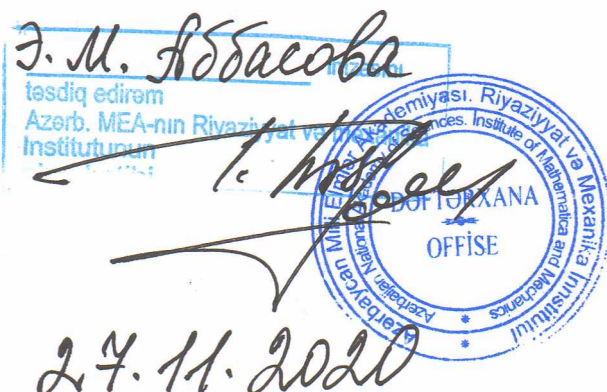 Э. М. Аббасова
imzasını
təsdiq edirəm
Azərb. MEA-nın Riyaziyyat və mexanika
Institutunun
Azərbaycan Milli Elmlər Akademiyası. Riyaziyyat və Mexanika Innstitutul
Azerbaijan National Academy of Sciences. Institute of Mathematica and Mechanics
DƏFTƏRXANA
OFFİSE
27.11.2020